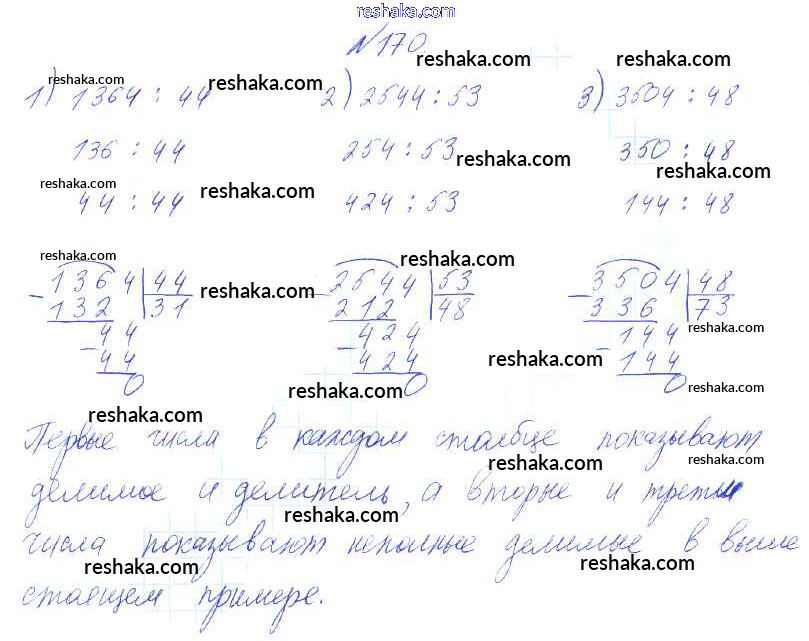 reshaka.com
№170.
reshaka.com reshaka.com reshaka.com reshaka.com
1) 1364 : 44 2) 2544 : 53 3) 3504 : 48
reshaka.com
136 : 44 254 : 53 350 : 48
reshaka.com reshaka.com
reshaka.com reshaka.com
44 : 44 424 : 53 144 : 48
reshaka.com reshaka.com
1364 44 2544 53 3504 48
reshaka.com
- 132 31 - 212 48 - 336 73
reshaka.com
44 424 144
- 44 - 424 - 144
reshaka.com
0 0 0
reshaka.com reshaka.com
reshaka.com
Первые числа в каждом столбце показывают
reshaka.com reshaka.com
делимое и делитель, а вторые и третьи
reshaka.com
числа показывают неполные делимые в выше
reshaka.com reshaka.com
стоящем примере.